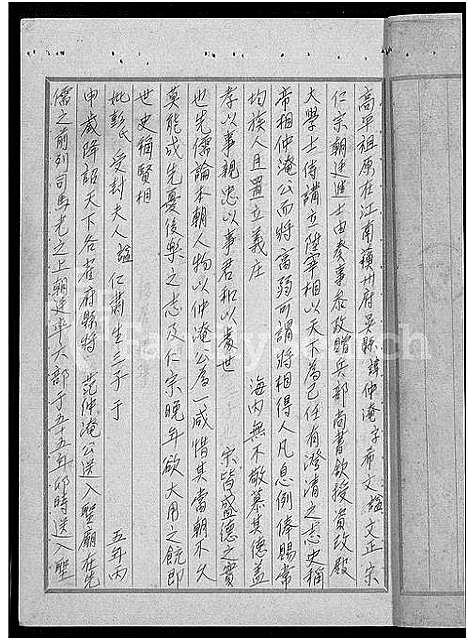 高平祖原在江南蘓州府吳縣諱仲淹字希文謚文正宗
仁宗朝進進士由參事參政贈兵部尚書欽授資政殿
大學士侍講立陞宰相以天下為己任有澄清之志史稱
帝相仲淹公而將富弼可謂將相得人凡息例俸賜常
均族人且置立義庄 海內無不敬慕其德盖
孝以事親忠以事君和以貴世 宗皆盛德之實
也先儒論本朝人物以仲淹公為一咸惜其當朝不久
莫能成先憂後樂之志及仁宗晚年欲大用之既即
世史稱賢相
妣彭氏受封夫人謚仁 生三子于 五年丙
申歲降詔天下各省府縣將范仲淹公送入聖廟在先
儒之前列司馬光之上朝廷 六部于五十五年卯時送入聖
FamilySearch